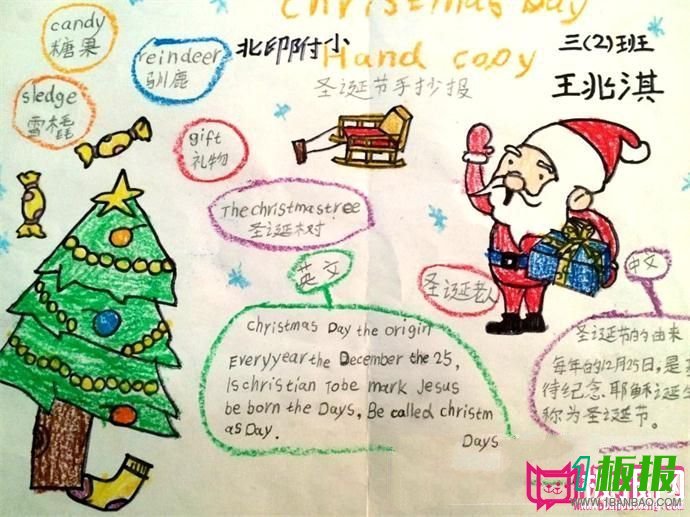 Christmas Day
candy
糖果
reindeer
驯鹿
北印附小
Hand copy
三(2)班
圣诞节手抄报
王兆淇
sledge
雪橇
gift
礼物
The christmas tree
圣诞树
英文
圣诞老人
中文
Christmas Day the origin
Everyyear the December the 25,
Is christian Tobe mark Jesus
be born the Days, Be called christm
as Day.
Days
圣诞节的由来
每年的12月25日,是
待纪念耶稣诞生
称为圣诞节。
板报
WWW.1BANBAO.COM